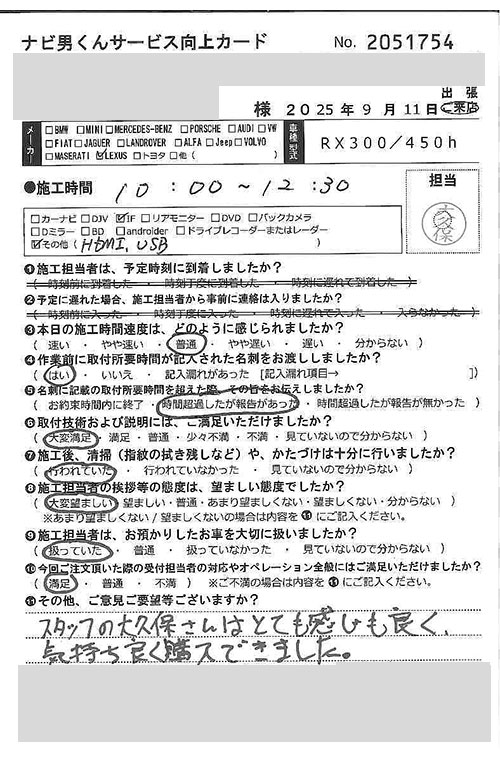 ナビ男くんサービス向上カード No. 2051754
出 張
様 2025年 9月 11日 ご来店
メーカー
□BMW □MINI □MERCEDES-BENZ □PORSCHE □AUDI □VW
□FIAT □JAGUER □LANDROVER □ALFA □Jeep □VOLVO
□MASERATI ☑LEXUS □トヨタ □他 ( )
車種型式
RX300/450h
●施工時間 10:00~12:30
担当
大久保
□カーナビ □DJV ☑IF □リアモニター □DVD □バックカメラ
□Dミラー □BD □androider □ドライブレコーダーまたはレーダー
☑その他 ( HDMI, USB )
❶施工担当者は、予定時刻に到着しましたか?
( 時刻前に到着した ・ 時刻丁度に到着した ・ 時刻に遅れて到着した )
❷予定に遅れた場合、施工担当者から事前に連絡は入りましたか?
( 時刻前に入った ・ 時刻丁度に入った ・ 時刻に遅れて入った ・ 入らなかった )
❸本日の施工時間速度は、どのように感じられましたか?
( 速い ・ やや速い ・ 普通 ・ やや遅い ・ 遅い ・ 分からない )
❹作業前に取付所要時間が記入された名刺をお渡ししましたか?
( はい ・ いいえ ・ 記入漏れがあった [記入漏れ項目→ ])
❺名刺に記載の取付所要時間を超えた際、その旨をお伝えしましたか?
( お約束時間内に終了 ・ 時間超過したが報告があった ・ 時間超過したが報告が無かった )
❻取付技術および説明には、ご満足いただけましたか?
( 大変満足 ・ 満足 ・ 普通 ・ 少々不満 ・ 不満 ・ 見ていないので分からない )
❼施工後、清掃(指紋の拭き残しなど)や、かたづけは十分に行いましたか?
( 行われていた ・ 行われていなかった ・ 見ていないので分からない )
❽施工担当者の挨拶等の態度は、望ましい態度でしたか?
( 大変望ましい ・ 望ましい ・ 普通 ・ あまり望ましくない ・ 望ましくない ・ 分からない )
※あまり望ましくない / 望ましくないの場合は内容を⓫にご記入ください。
❾施工担当者は、お預かりしたお車を大切に扱いましたか?
( 扱っていた ・ 普通 ・ 扱っていなかった ・ 見ていないので分からない )
❿今回ご注文頂いた際の受付担当者の対応やオペレーション全般にはご満足いただけましたか?
( 満足 ・ 普通 ・ 不満 ) ※ご不満の場合は内容を⓫にご記入ください。
⓫その他、ご意見ご要望等ございますか?
スタッフの大久保さんはとても感じも良く、
気持ち良く購入できました。